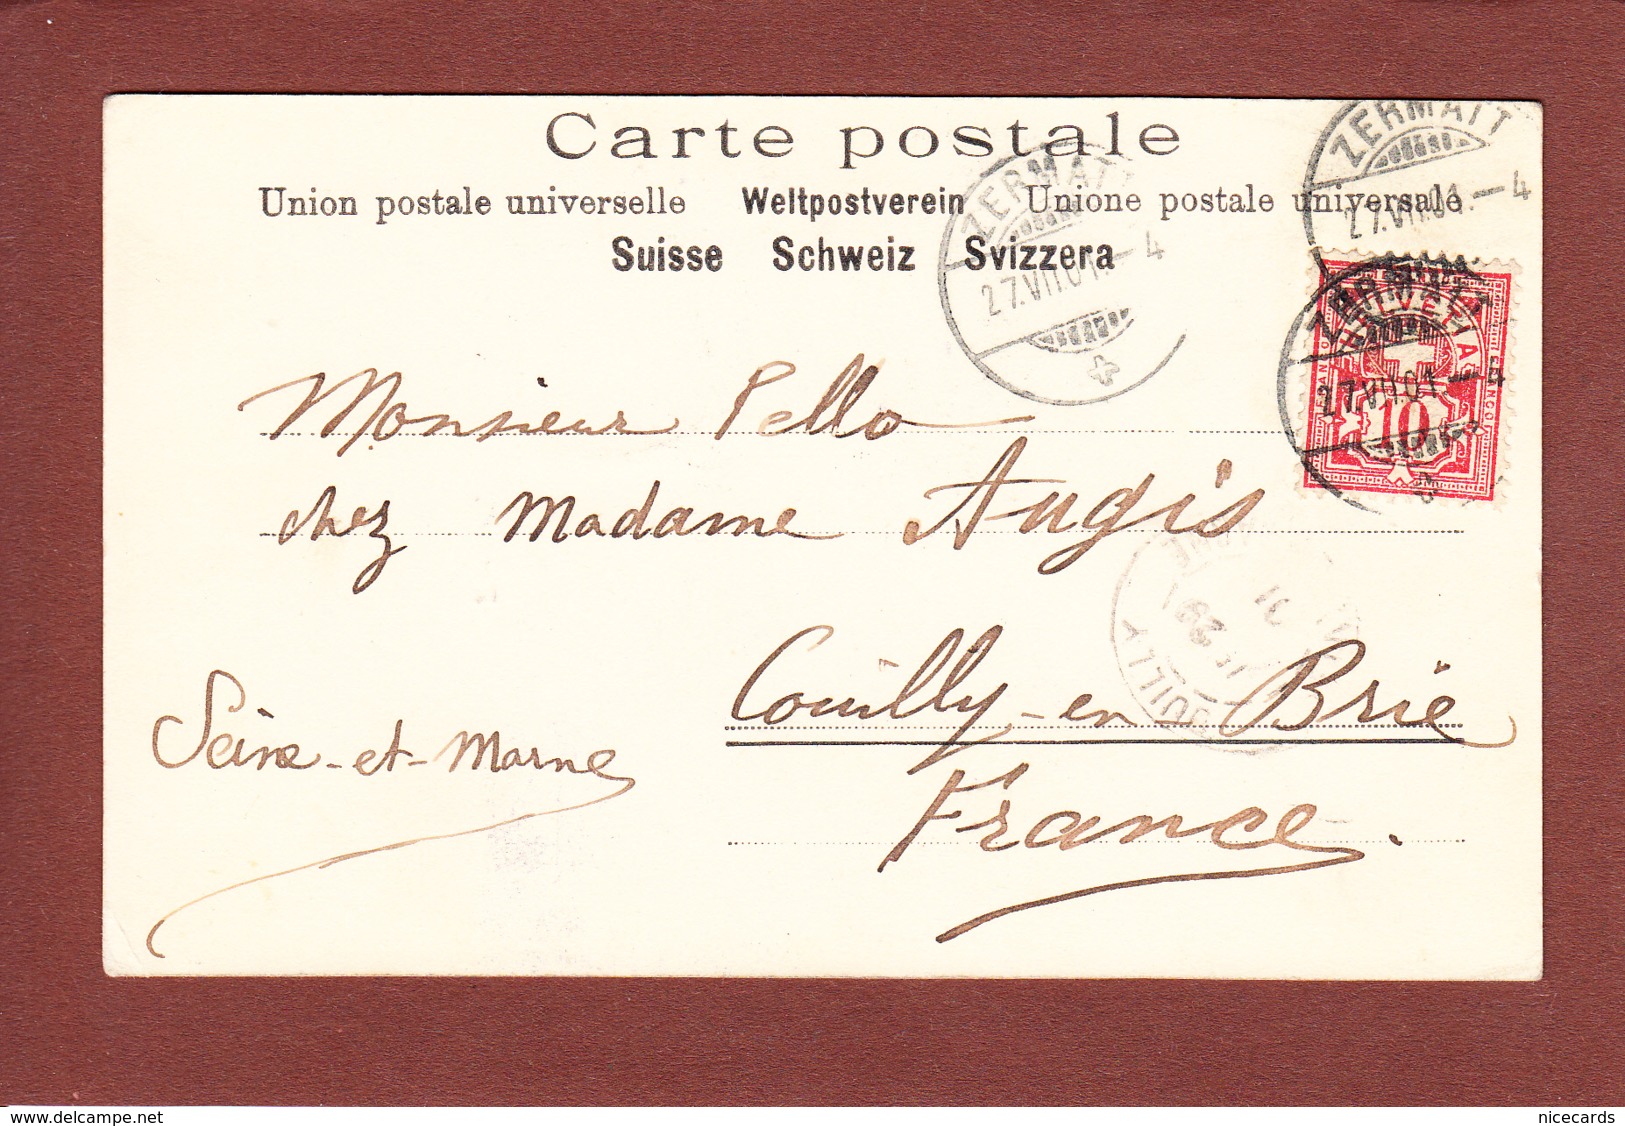 Carte postale
Union postale universelle Weltpostverein Unione postale universale
Suisse Schweiz Svizzera
ZERMATT
27.VII.01.–4
ZERMATT
27.VII.01.–4
ZERMATT
27.VII.01–4
HELVETIA
FRANCO
10
Monsieur Pello
chez Madame Augis
Couilly-en-Brie
Seine-et-Marne
France.
delcampe.net
nicecards